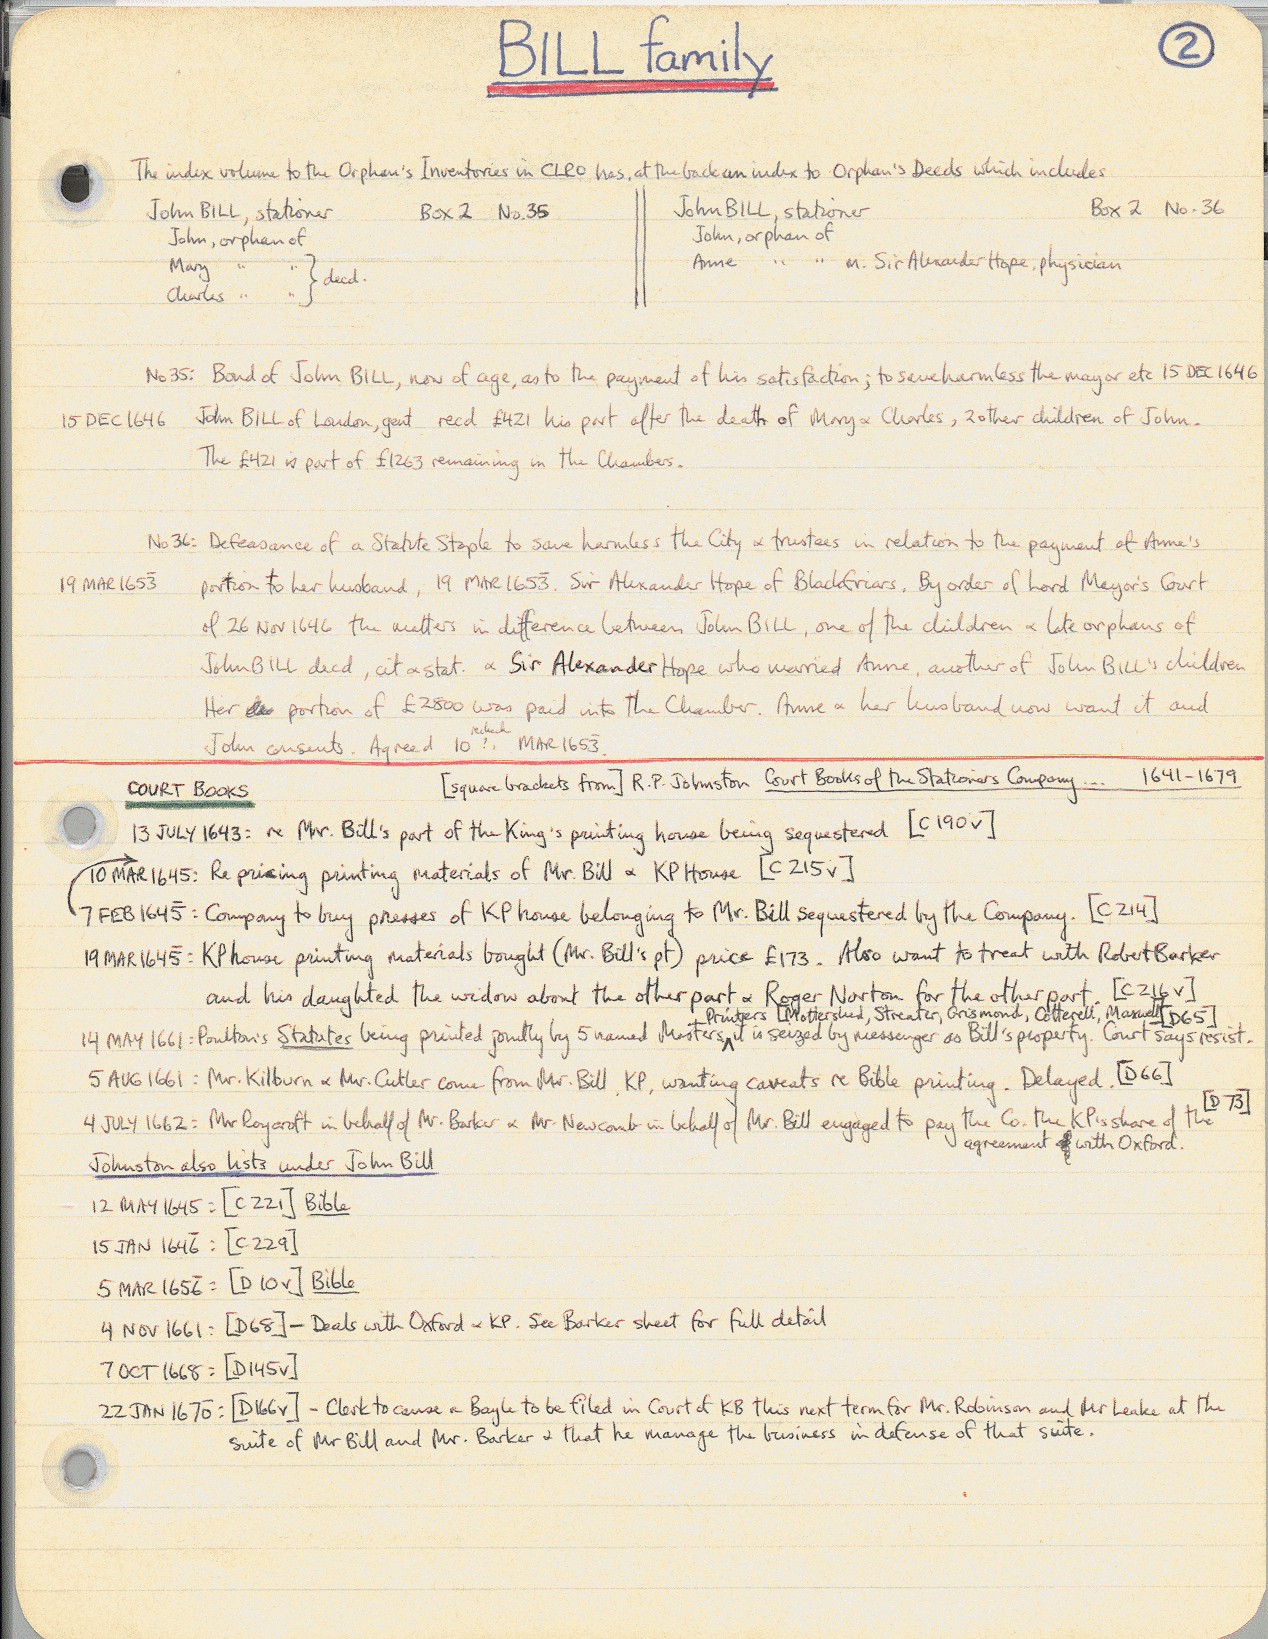 BILL family
2
The index volume to the Orphan's Inventories in CLRO has, at the back an index to Orphan's Deeds which includes
John BILL, stationer Box 2 No. 35
John, orphan of
Mary " " } decd.
Charles " "
John BILL, stationer Box 2 No. 36
John, orphan of
Anne " " m. Sir Alexander Hope, physician
No 35: Bond of John BILL, now of age, as to the payment of his satisfaction; to save harmless the mayor etc 15 DEC 1646
15 DEC 1646 John BILL of London, gent recd £421 his part after the death of Mary & Charles, 2 other children of John.
The £421 is part of £1263 remaining in the Chambers.
No 36: Defeasance of a Statute Staple to save harmless the City & trustees in relation to the payment of Anne's
19 MAR 1653 portion to her husband, 19 MAR 1653. Sir Alexander Hope of Blackfriars. By order of Lord Mayor's Court
of 26 Nov 1646 the matters in difference between John BILL, one of the children & late orphans of
John BILL decd, cit & stat. & Sir Alexander Hope who married Anne, another of John BILL's children
Her portion of £2800 was paid into the Chamber. Anne & her husband now want it and
John consents. Agreed 10 ? recheck MAR 1653.
COURT BOOKS [square brackets from] R.P. Johnston Court Books of the Stationers Company ... 1641-1679
13 JULY 1643: re Mr. Bill's part of the King's printing house being sequestered [C 190v]
10 MAR 1645: Re pricing printing materials of Mr. Bill & KP House [C 215v]
7 FEB 1645: Company to buy presses of KP house belonging to Mr. Bill sequestered by the Company. [C 214]
19 MAR 1645: KP house printing materials bought (Mr. Bill's pt) price £173. Also want to treat with Robert Barker
and his daughted the widow about the other part & Roger Norton for the other part. [C 216v]
Printers [Mottershed, Streater, Grismond, Cotterell, Maxwell] [D65]
14 MAY 1661: Poulton's Statutes being printed jointly by 5 named Masters, it is seized by messenger as Bill's property. Court says resist.
5 AUG 1661: Mr. Kilburn & Mr. Cutler come from Mr. Bill, KP, wanting caveats re Bible printing. Delayed. [D66]
4 JULY 1662: Mr Roycroft in behalf of Mr. Barker & Mr. Newcomb in behalf of Mr. Bill engaged to pay the Co. the KP's share of the [D 73]
agreement with Oxford.
Johnston also lists under John Bill
12 MAY 1645: [C 221] Bible
15 JAN 1646: [C 229]
5 MAR 1656: [D 10v] Bible
4 NOV 1661: [D68] – Deals with Oxford & KP. See Barker sheet for full detail
7 OCT 1668: [D145v]
22 JAN 1670: [D166v] – Clerk to cause a Bayle to be filed in Court of KB this next term for Mr. Robinson and Mr Leake at the
suite of Mr Bill and Mr. Barker & that he manage the business in defense of that suite.